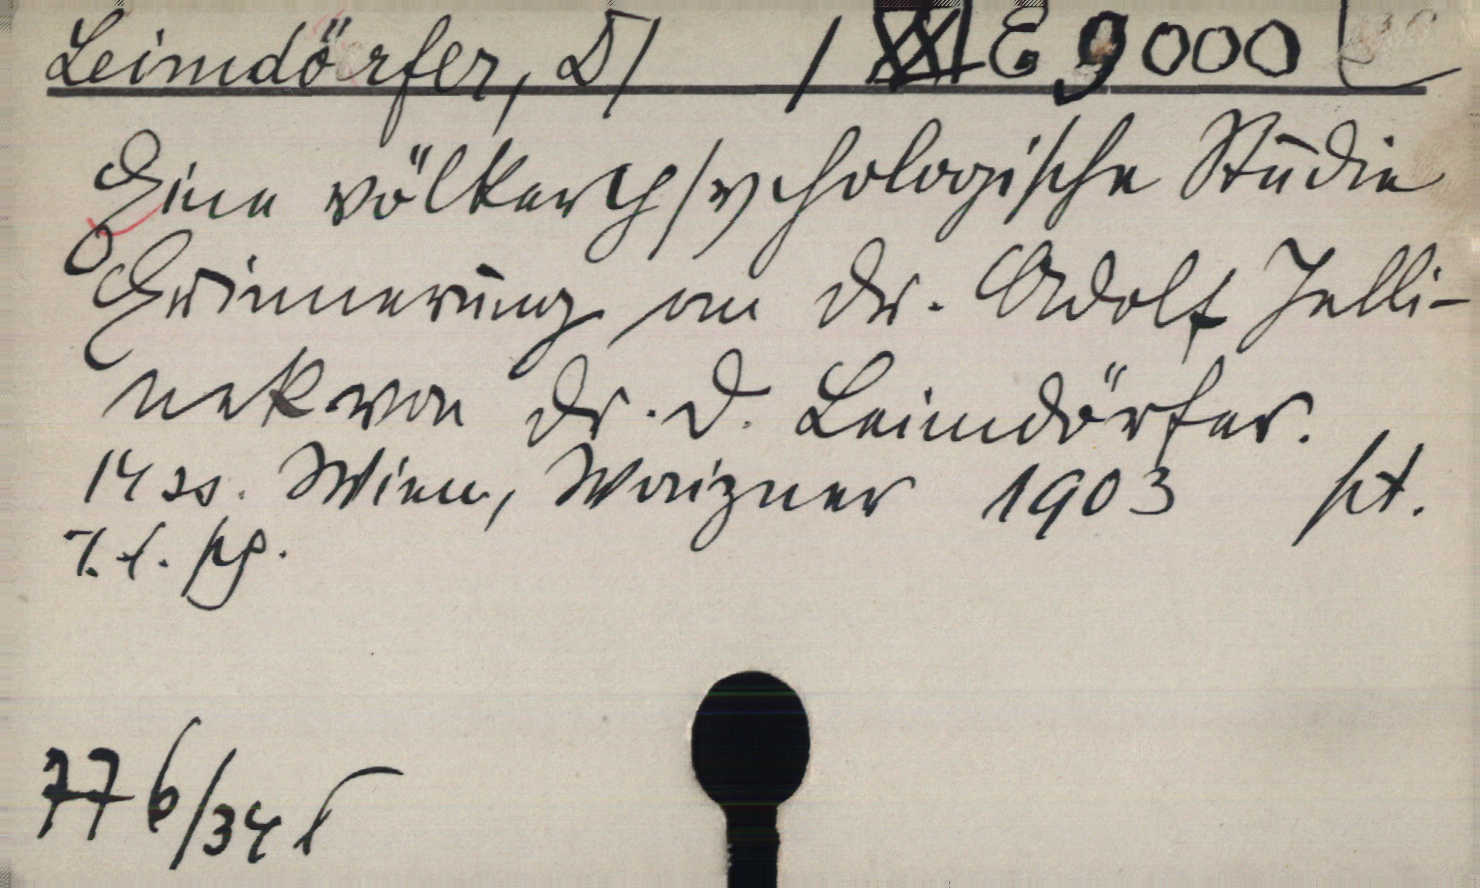 Leimdörfer, D/ / E 9000
Eine völkerpsychologische Studie
Erinnerung an Dr. Adolf Jelli-
nek von Dr. D. Leimdörfer.
14 ss. Wien, Waizner 1903 pt.
7. f. pg.
776/34